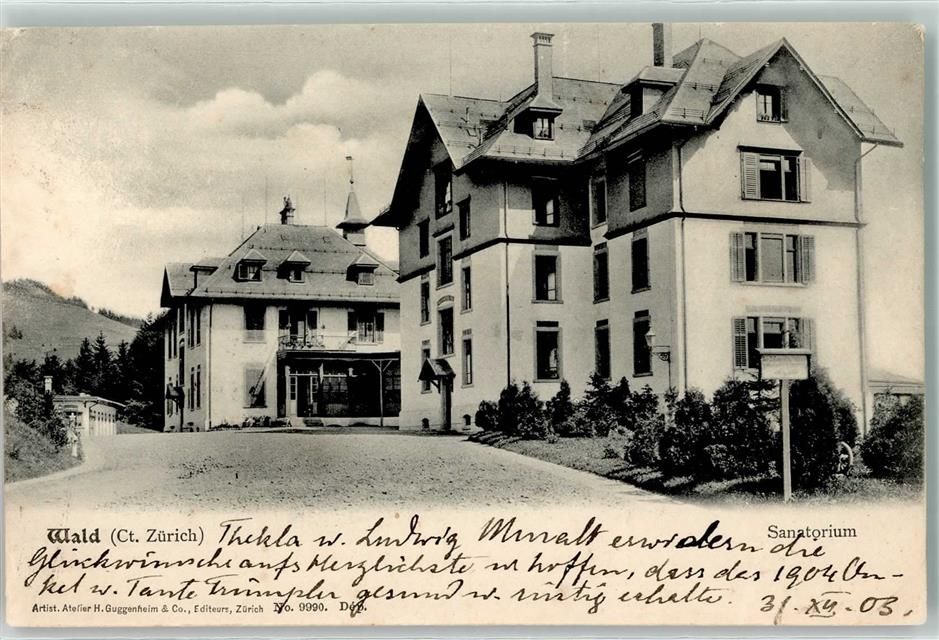 Wald (Ct. Zürich) Thekla u. Ludwig Muralt erwidern die
Sanatorium
Glückwünsche aufs Herzlichste u hoffen, dass das 1904 On-
kel u. Tante Trümpler gesund u. rüstig erhalte.
Artist. Atelier H. Guggenheim & Co., Editeurs, Zürich No. 9990. Dép.
31. XII. 03.